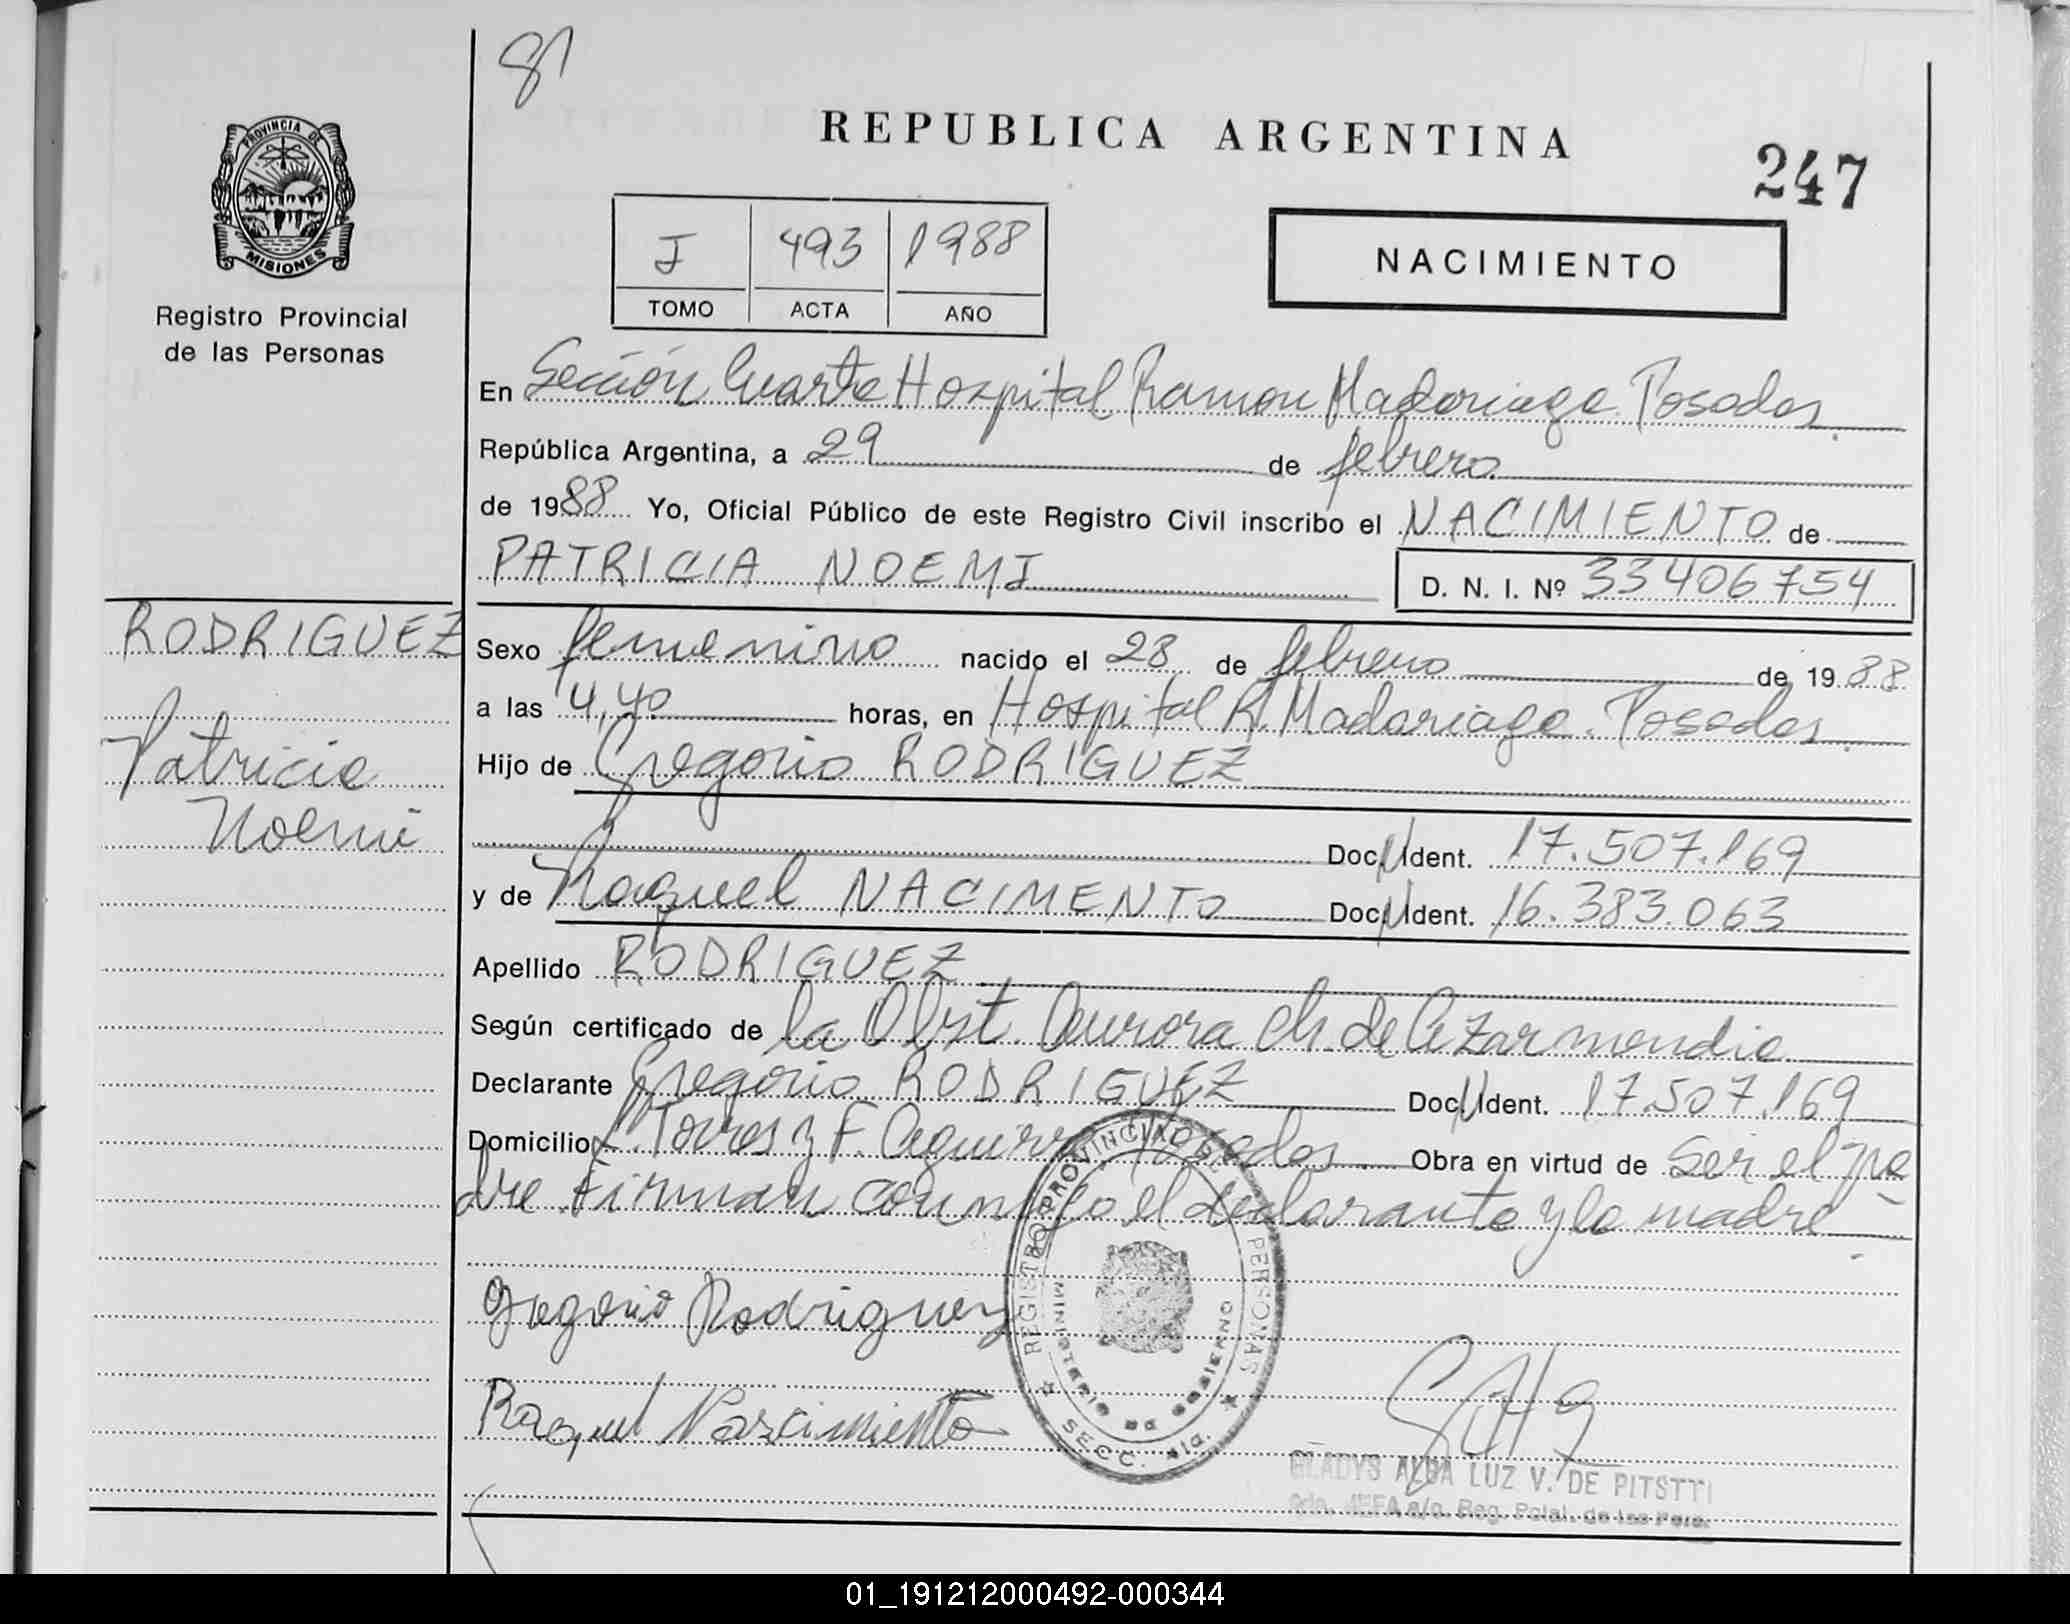 81
REPUBLICA ARGENTINA
247
PROVINCIA DE
MISIONES
Registro Provincial
de las Personas
J 493 1988
TOMO ACTA AÑO
NACIMIENTO
En Sección Cuarta Hospital Ramon Madariaga. Posadas
República Argentina, a 29 de febrero
de 1988 Yo, Oficial Público de este Registro Civil inscribo el NACIMIENTO de
PATRICIA NOEMI D. N. I. Nº 33406754
RODRIGUEZ
Patricia
Noemi
Sexo femenino nacido el 28 de febrero de 1988
a las 4,40 horas, en Hospital R. Madariaga. Posadas
Hijo de Gregorio RODRIGUEZ
Doc. N Ident. 17.507.169
y de Raquel NACIMENTO Doc. N Ident. 16.383.063
Apellido RODRIGUEZ
Según certificado de la Obst. Aurora Ch. de Azarmendia
Declarante Gregorio RODRIGUEZ Doc. N Ident. 17.507.169
Domicilio Torres y F. Aguirre Posadas Obra en virtud de ser el pa
dre. Firman conmigo el declarante y la madre
Gregorio Rodriguez
Raquel Nascimiento
REGISTRO PROVINCIAL DE LAS PERSONAS
MINISTERIO DE GOBIERNO
SECC. 4ta.
GLADYS ALBA LUZ V. DE PITSTTI
JEFA a/c. Reg. Pcial. de las Pers.
01_191212000492-000344